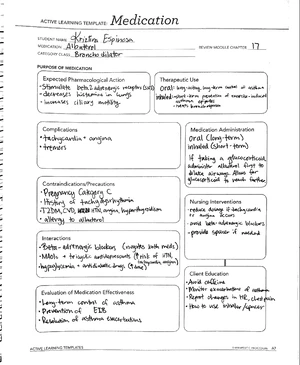 ACTIVE LEARNING TEMPLATE: Medication
STUDENT NAME Kristina Espinosa
MEDICATION Albuterol REVIEW MODULE CHAPTER 17
CATEGORY CLASS Bronchodilator
PURPOSE OF MEDICATION
Expected Pharmacological Action
• Stimulate beta 2 adrenergic receptors
• decreases histamine in lungs
• increases ciliary motility
Therapeutic Use
Oral: long-acting, long-term control of asthma
inhaled: short-term prevention of exercise-induced
asthma episodes
Complications
• tachycardia + angina
• tremors
Medication Administration
Oral (long-term)
inhaled (short-term)
If taking a glucocorticoid,
administer albuterol first to
dilate airways. Allows for
glucocorticoid to reach further
Contraindications/Precautions
• Pregnancy Category C
• History of tachydysrhythmia
• T2DM, CVD, HTN, angina, hyperthyroidism
• allergy to albuterol
Nursing Interventions
• reduce dosage if tachycardia
to angina occurs
• avoid beta-adrenergic blockers
• provide spacer if needed
Interactions
• Beta-adrenergic blockers (negates both meds)
• MAOIs + tricyclic antidepressants (↑ risk of HTN,
tachycardia, angina)
hypoglycemia + antidiabetic drugs (↑ dose)
Client Education
• Avoid caffeine
• Monitor exacerbations of asthma
• Report changes in HR, chest pain
• How to use inhaler/spacer
Evaluation of Medication Effectiveness
• Long-term control of asthma
• Prevention of EIB
• Resolution of asthma exacerbations
ACTIVE LEARNING TEMPLATES